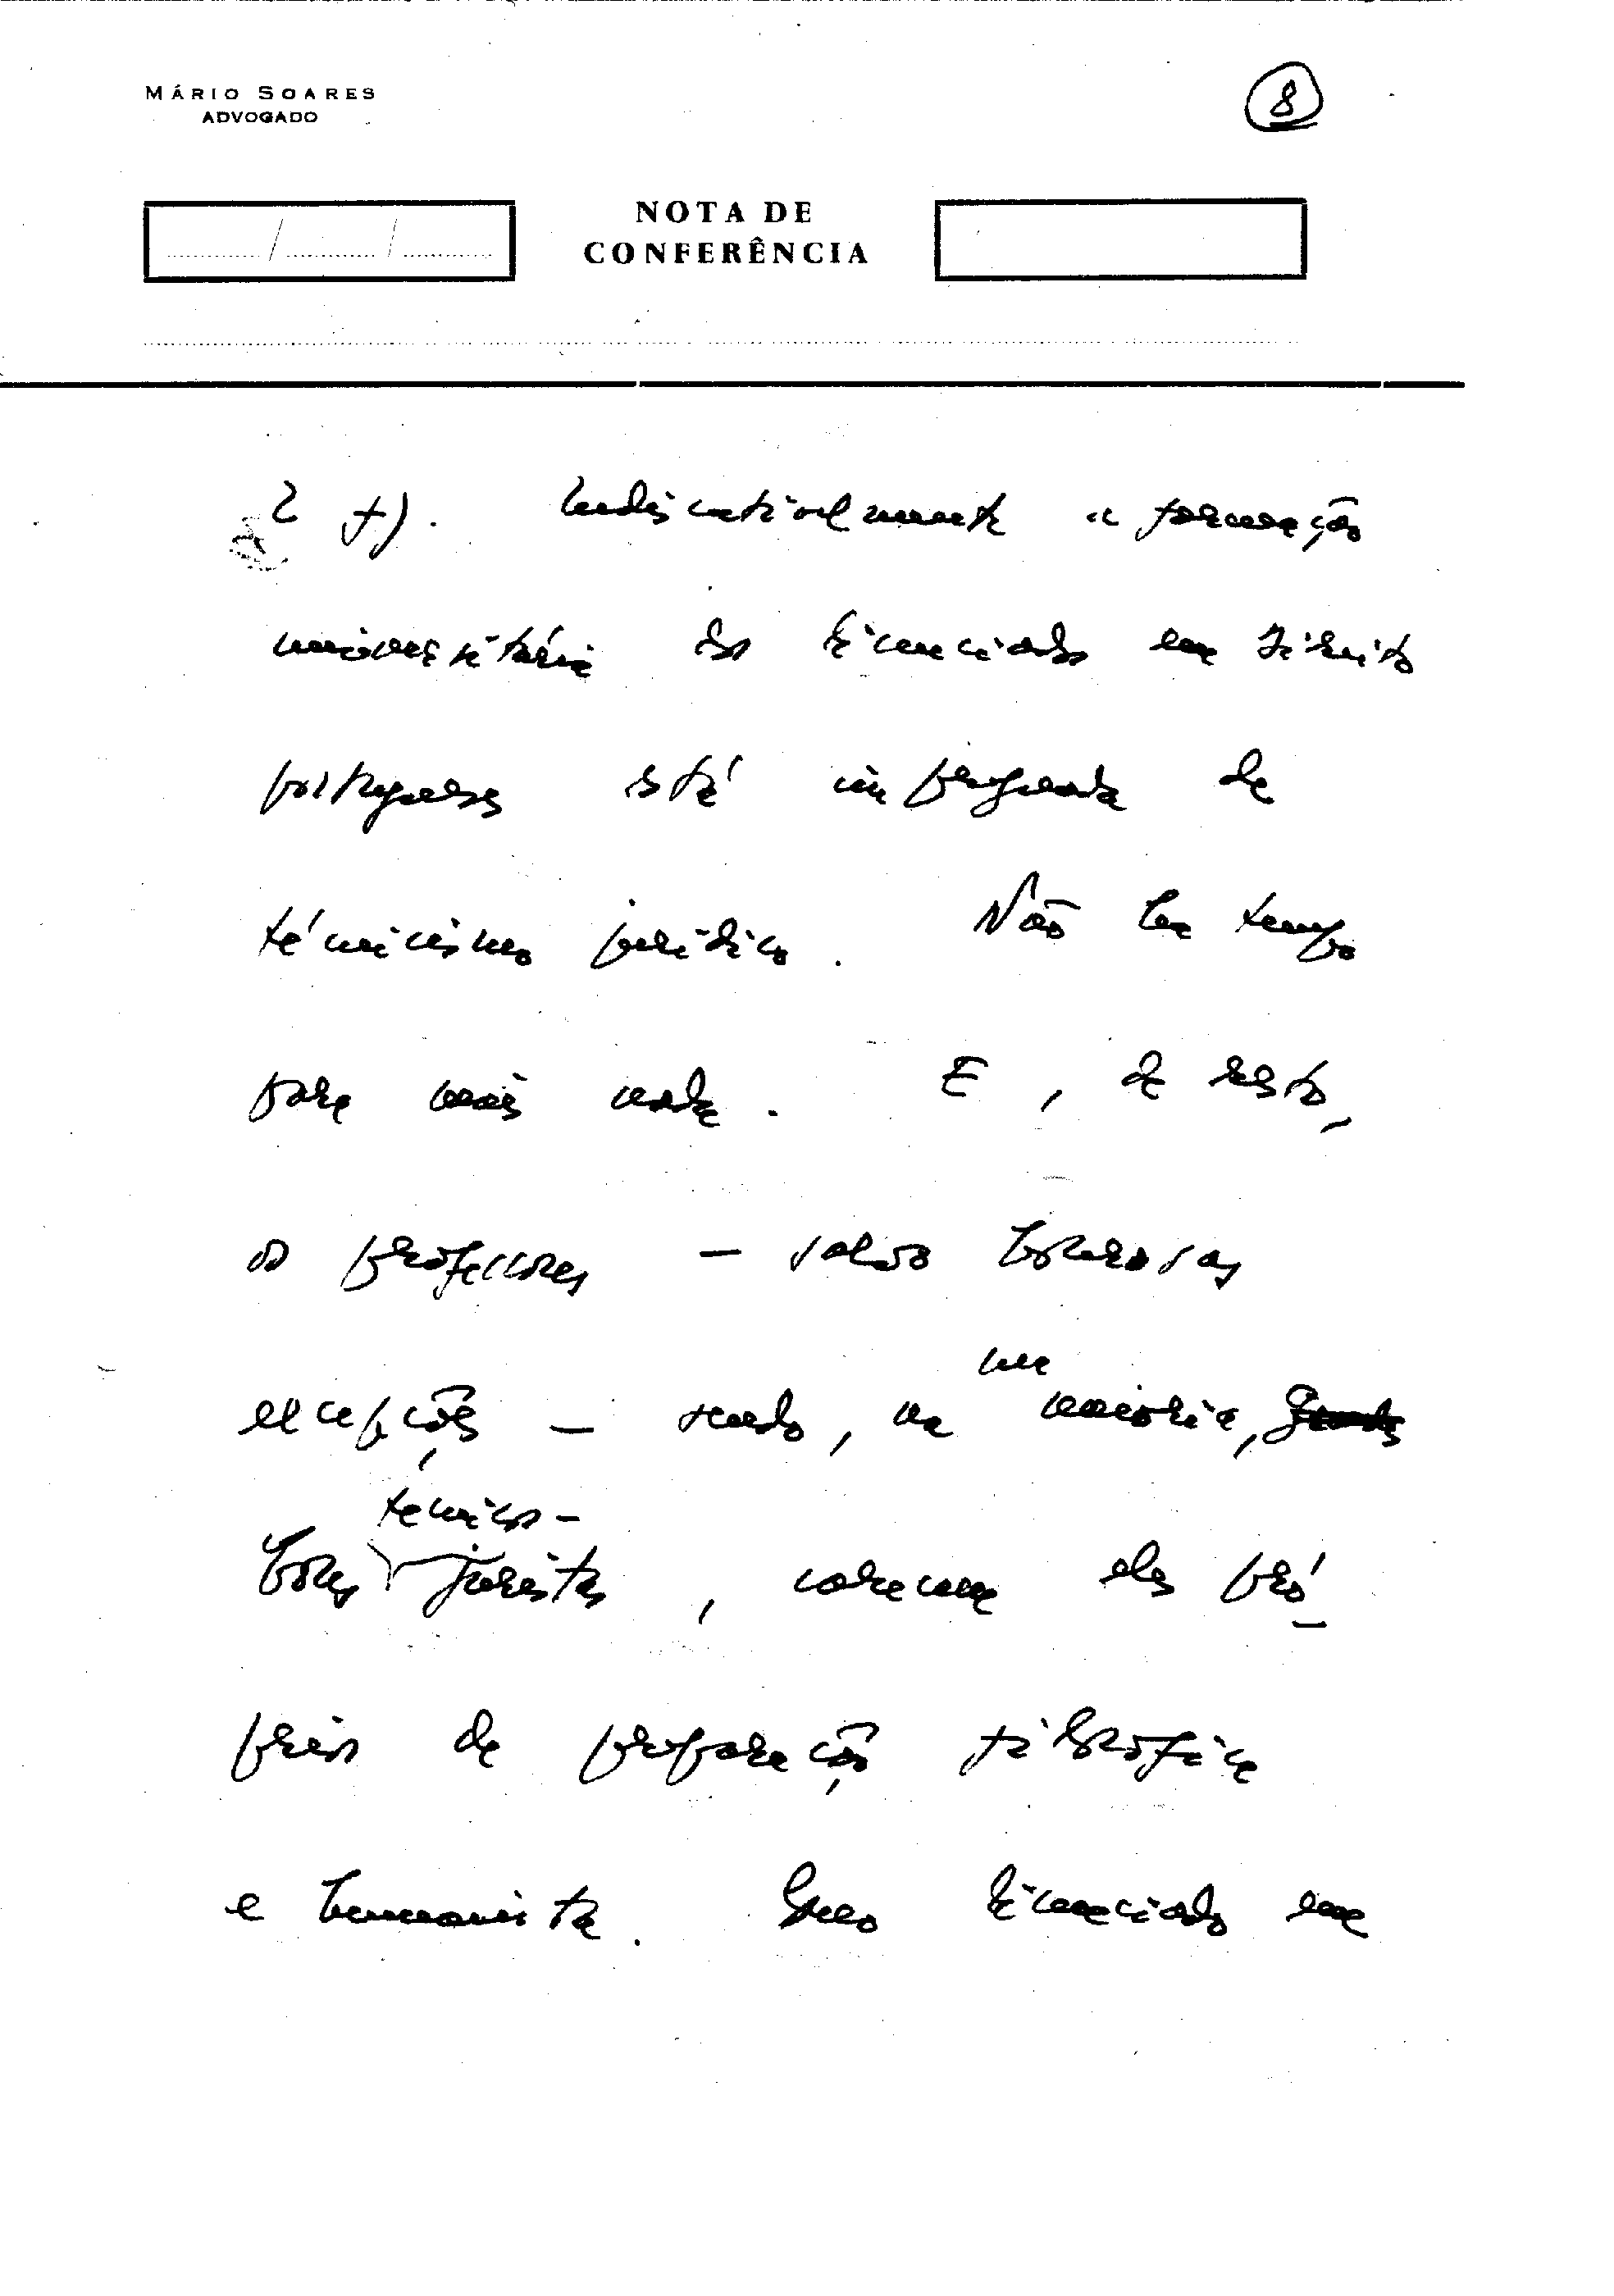 MÁRIO SOARES
ADVOGADO
8
NOTA DE
CONFERÊNCIA
2 f). Indiscutivelmente a formação
universitária dos licenciados em Direito
portugueses está impregnada de
técnicismo jurídico. Não há tempo
para mais nada. E, de resto,
os professores — salvo honrosas
excepções — sendo, na maioria,
bons técnicos-juristas, carecem eles pró-
prios de preparação filosófica
e humanista. Um licenciado em